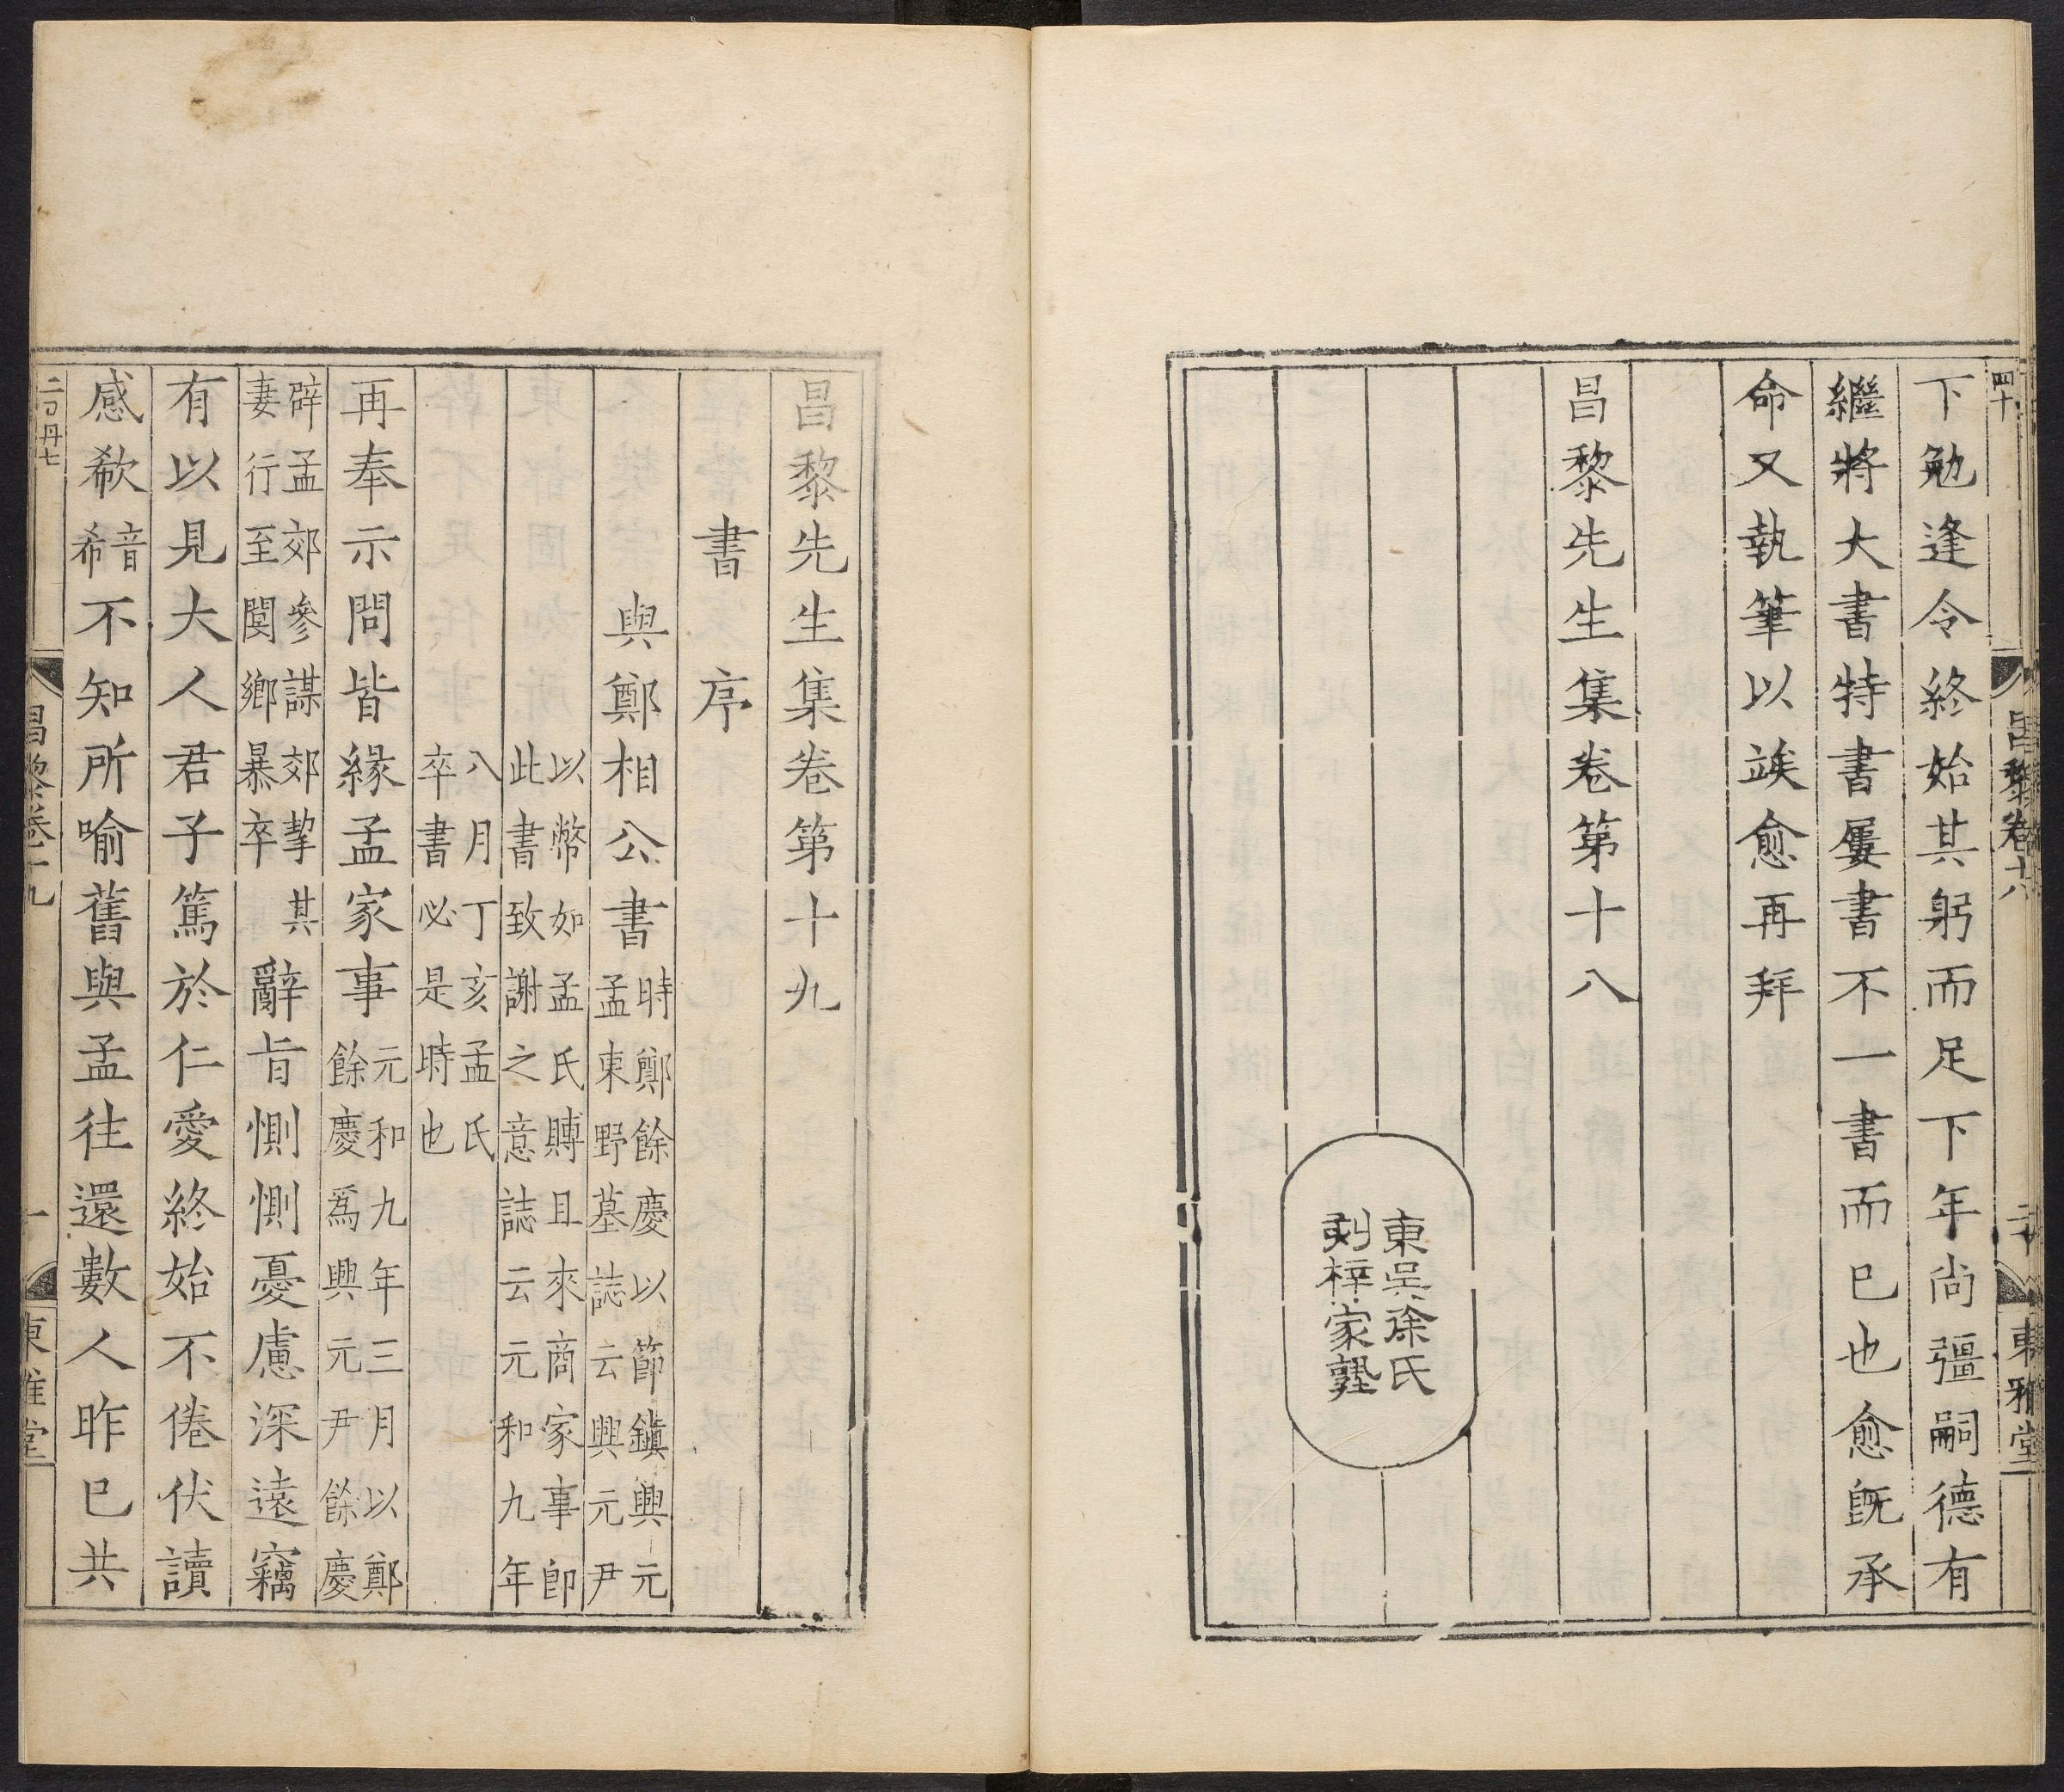 下勉逢令終始其躬而足下年尚彊嗣德有
繼將大書特書屢書不一書而已也愈旣承
命又執筆以竢愈再拜
昌黎先生集卷第十八
東吳徐氏
刻梓家塾
昌黎先生集卷第十九
書 序
與鄭相公書 時鄭餘慶以節鎮興元
孟東野墓誌云興元尹
以幣如孟氏賻且來商家事卽
此書致謝之意誌云元和九年
八月丁亥孟氏
卒書必是時也
再奉示問皆緣孟家事 元和九年三月以鄭
餘慶爲興元尹餘慶
辟孟郊參謀郊挈其
妻行至閿鄉暴卒
辭旨惻惻憂慮深遠竊
有以見大人君子篤於仁愛終始不倦伏讀
感欷 音
希
不知所喻舊與孟往還數人昨已共
四十
昌黎卷十八
東雅堂
昌黎卷十九
一
東雅堂